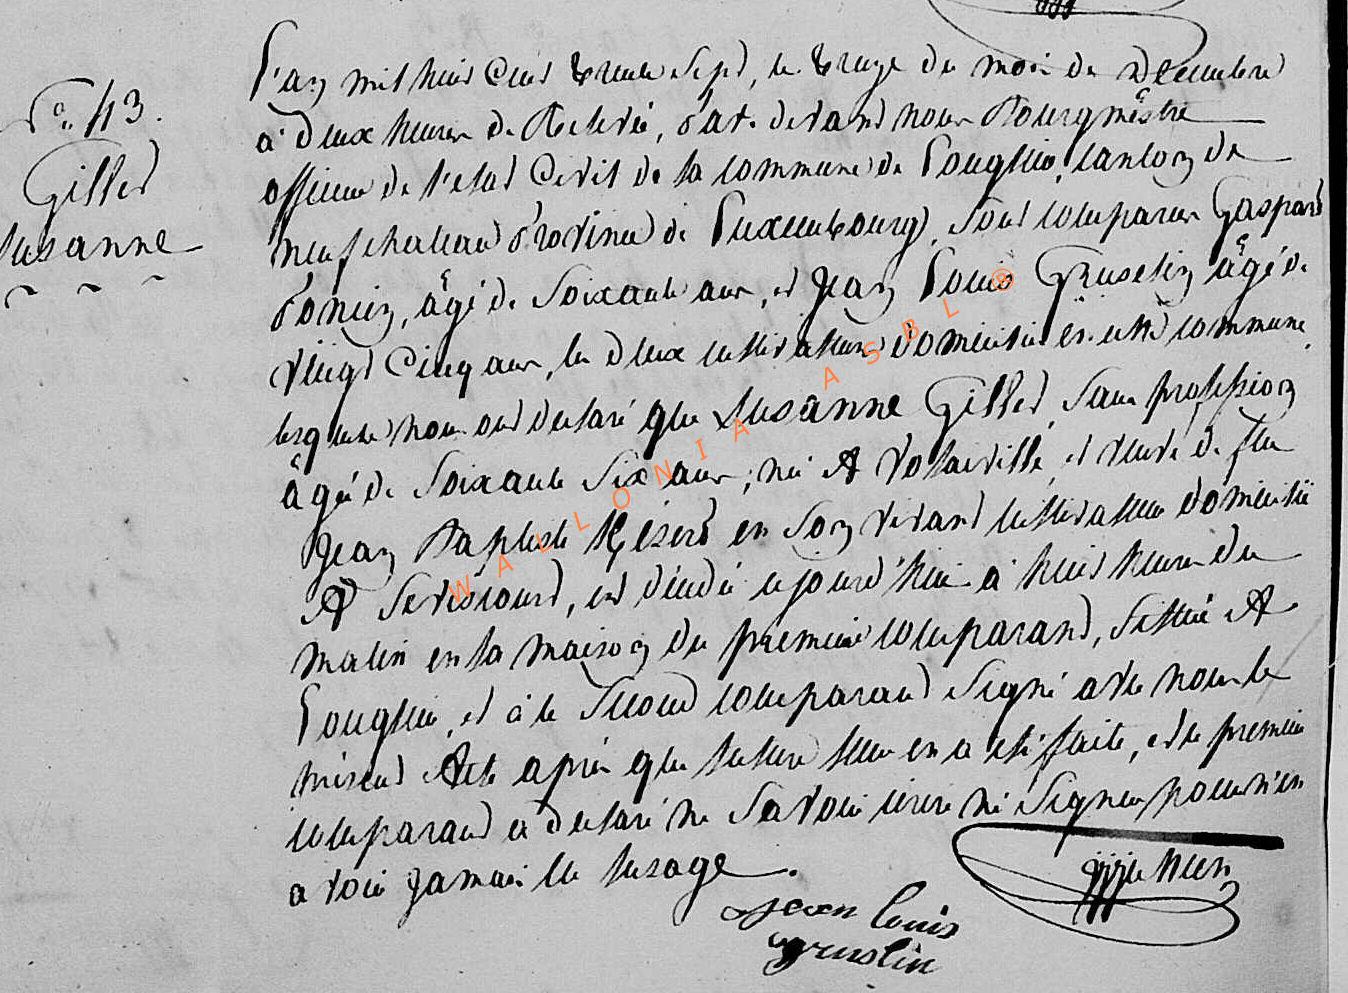 N.° 43.
Gilles
Susanne
L'an mil huit Cent trente Sept, le treize du mois de Decembre
à deux heures de Relevée, par devant nous Bourgmêstre
officier de l'etat Civil de la commune de Longlier, canton de
neufchateau province de Luxembourg, Sont comparus Gaspard
Poncin, âgé de Soixante ans, et Jean Louis Gruselin âgé de
vingt Cinq ans, les deux cultivateurs domiciliés en cette commune
lesquels nous ont declaré que Susanne Gilles, Sans profession
âgée de Soixante Six ans, née A Volaiville, et veuve de feu
Jean Baptiste en Son vivant cultivateur domicilié
A Seviscourt, est décédée cejourd'hui à huit heures du
matin en la maison du premier comparant, Située A
Longlier, et a le Second comparant Signé avec nous le
présent Acte après que lecture leur en a été faite, et le premier
comparant a declaré ne Savoir ecrire ni Signer pour n'en
avoir Jamais eu lusage.
Jean louis
gruslin
WALLONIA ASBL ®